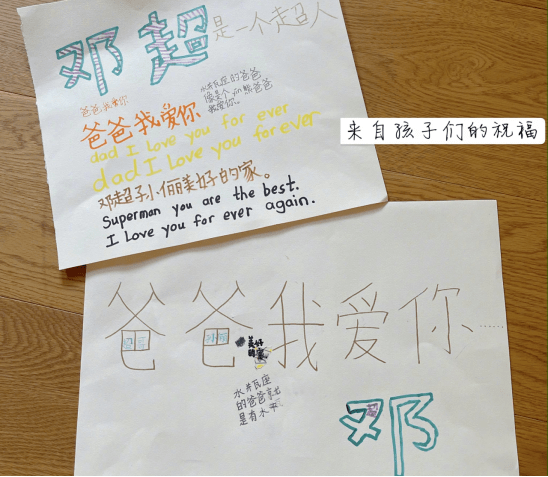 邓超是一个超人
爸爸我爱你
水瓶座的爸爸
爸爸我爱你
dad I Love you for ever
dad I Love you for ever
邓超子小俪美好的家。
Superman you are the best.
I Love you for ever again.
来自孩子们的祝福
爸爸我爱你……
美好
的家
水瓶座
的爸爸就
是有水平
邓